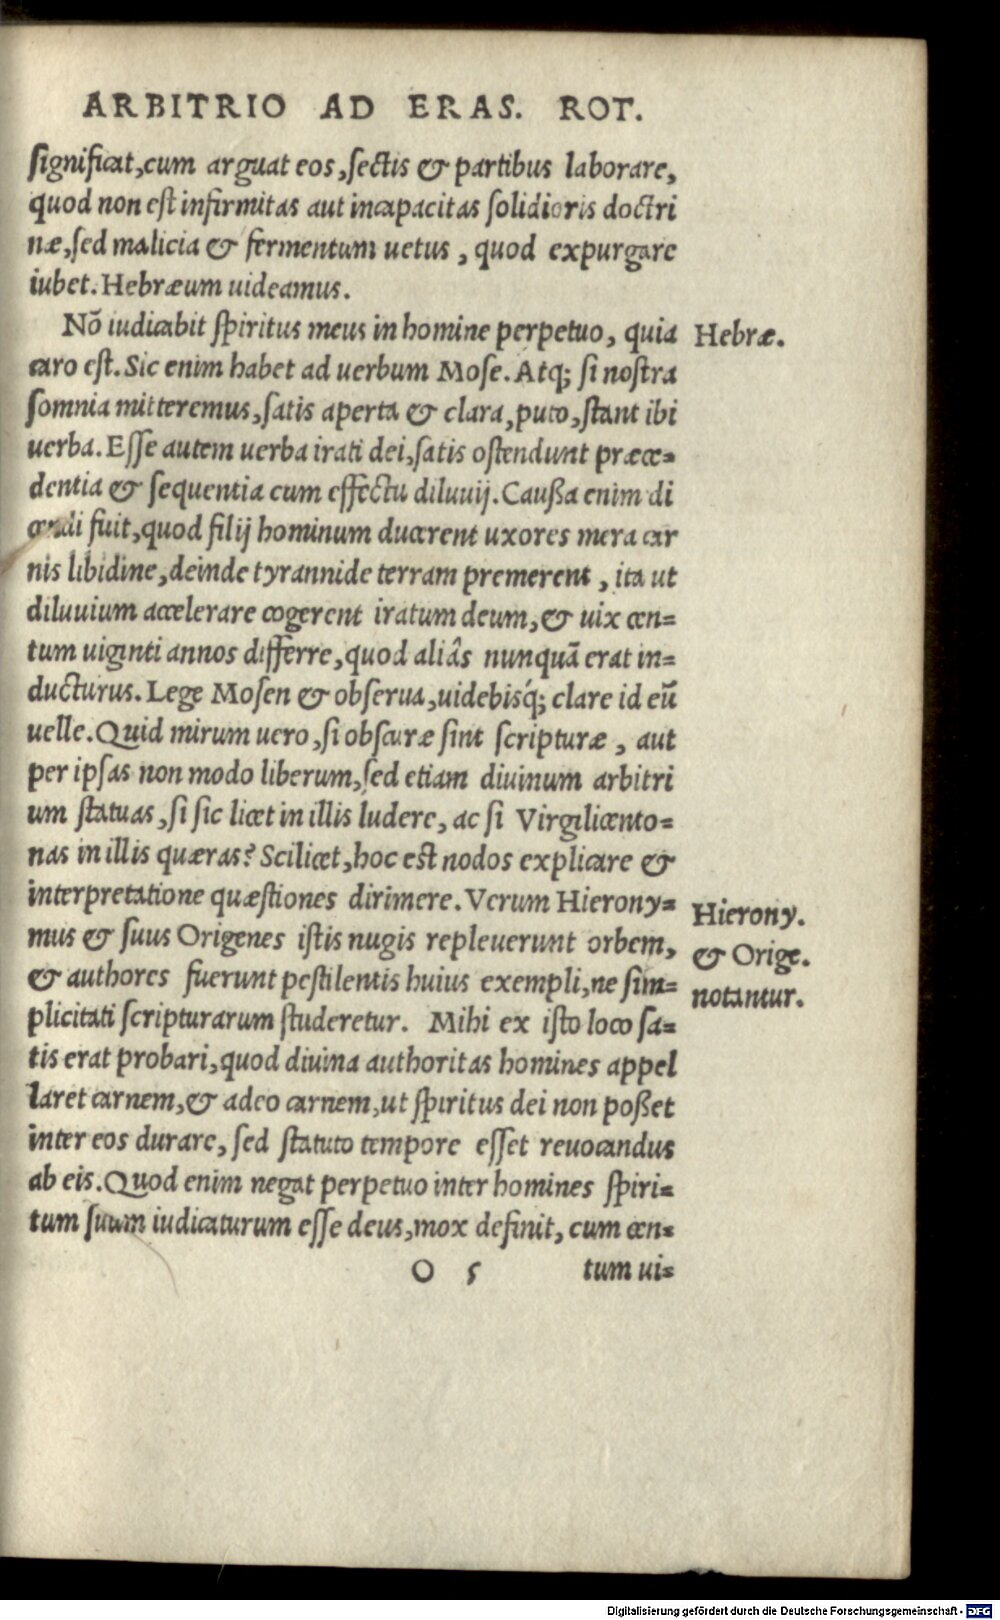 ARBITRIO AD ERAS. ROT.
significat, cum arguat eos, sectis & partibus laborare,
quod non est infirmitas aut incapacitas solidioris doctri
næ, sed malicia & fermentum uetus, quod expurgare
iubet. Hebræum uideamus.
Nõ iudicabit spiritus meus in homine perpetuo, quia
Hebræ.
caro est. Sic enim habet ad uerbum Mose. Atq; si nostra
somnia mitteremus, satis aperta & clara, puto, stant ibi
uerba. Esse autem uerba irati dei, satis ostendunt præce=
dentia & sequentia cum effectu diluuij. Caußa enim di
cendi fuit, quod filij hominum ducerent uxores mera car
nis libidine, deinde tyrannide terram premerent, ita ut
diluuium accelerare cogerent iratum deum, & uix cen=
tum uiginti annos differre, quod aliâs nunquã erat in=
ducturus. Lege Mosen & obserua, uidebisq́; clare id eũ
uelle. Quid mirum uero, si obscuræ sint scripturæ, aut
per ipsas non modo liberum, sed etiam diuinum arbitri
um statuas, si sic licet in illis ludere, ac si Virgilicento=
nas in illis quæras? Scilicet, hoc est nodos explicare &
interpretatione quæstiones dirimere. Verum Hierony=
Hierony.
mus & suus Origenes istis nugis repleuerunt orbem,
& Orige.
& authores fuerunt pestilentis huius exempli, ne sim=
notantur.
plicitati scripturarum studeretur. Mihi ex isto loco sa=
tis erat probari, quod diuina authoritas homines appel
laret carnem, & adeo carnem, ut spiritus dei non poßet
inter eos durare, sed statuto tempore esset reuocandus
ab eis. Quod enim negat perpetuo inter homines spiri=
tum suum iudicaturum esse deus, mox definit, cum cen=
O 5 tum ui=
Digitalisierung gefördert durch die Deutsche Forschungsgemeinschaft - DFG